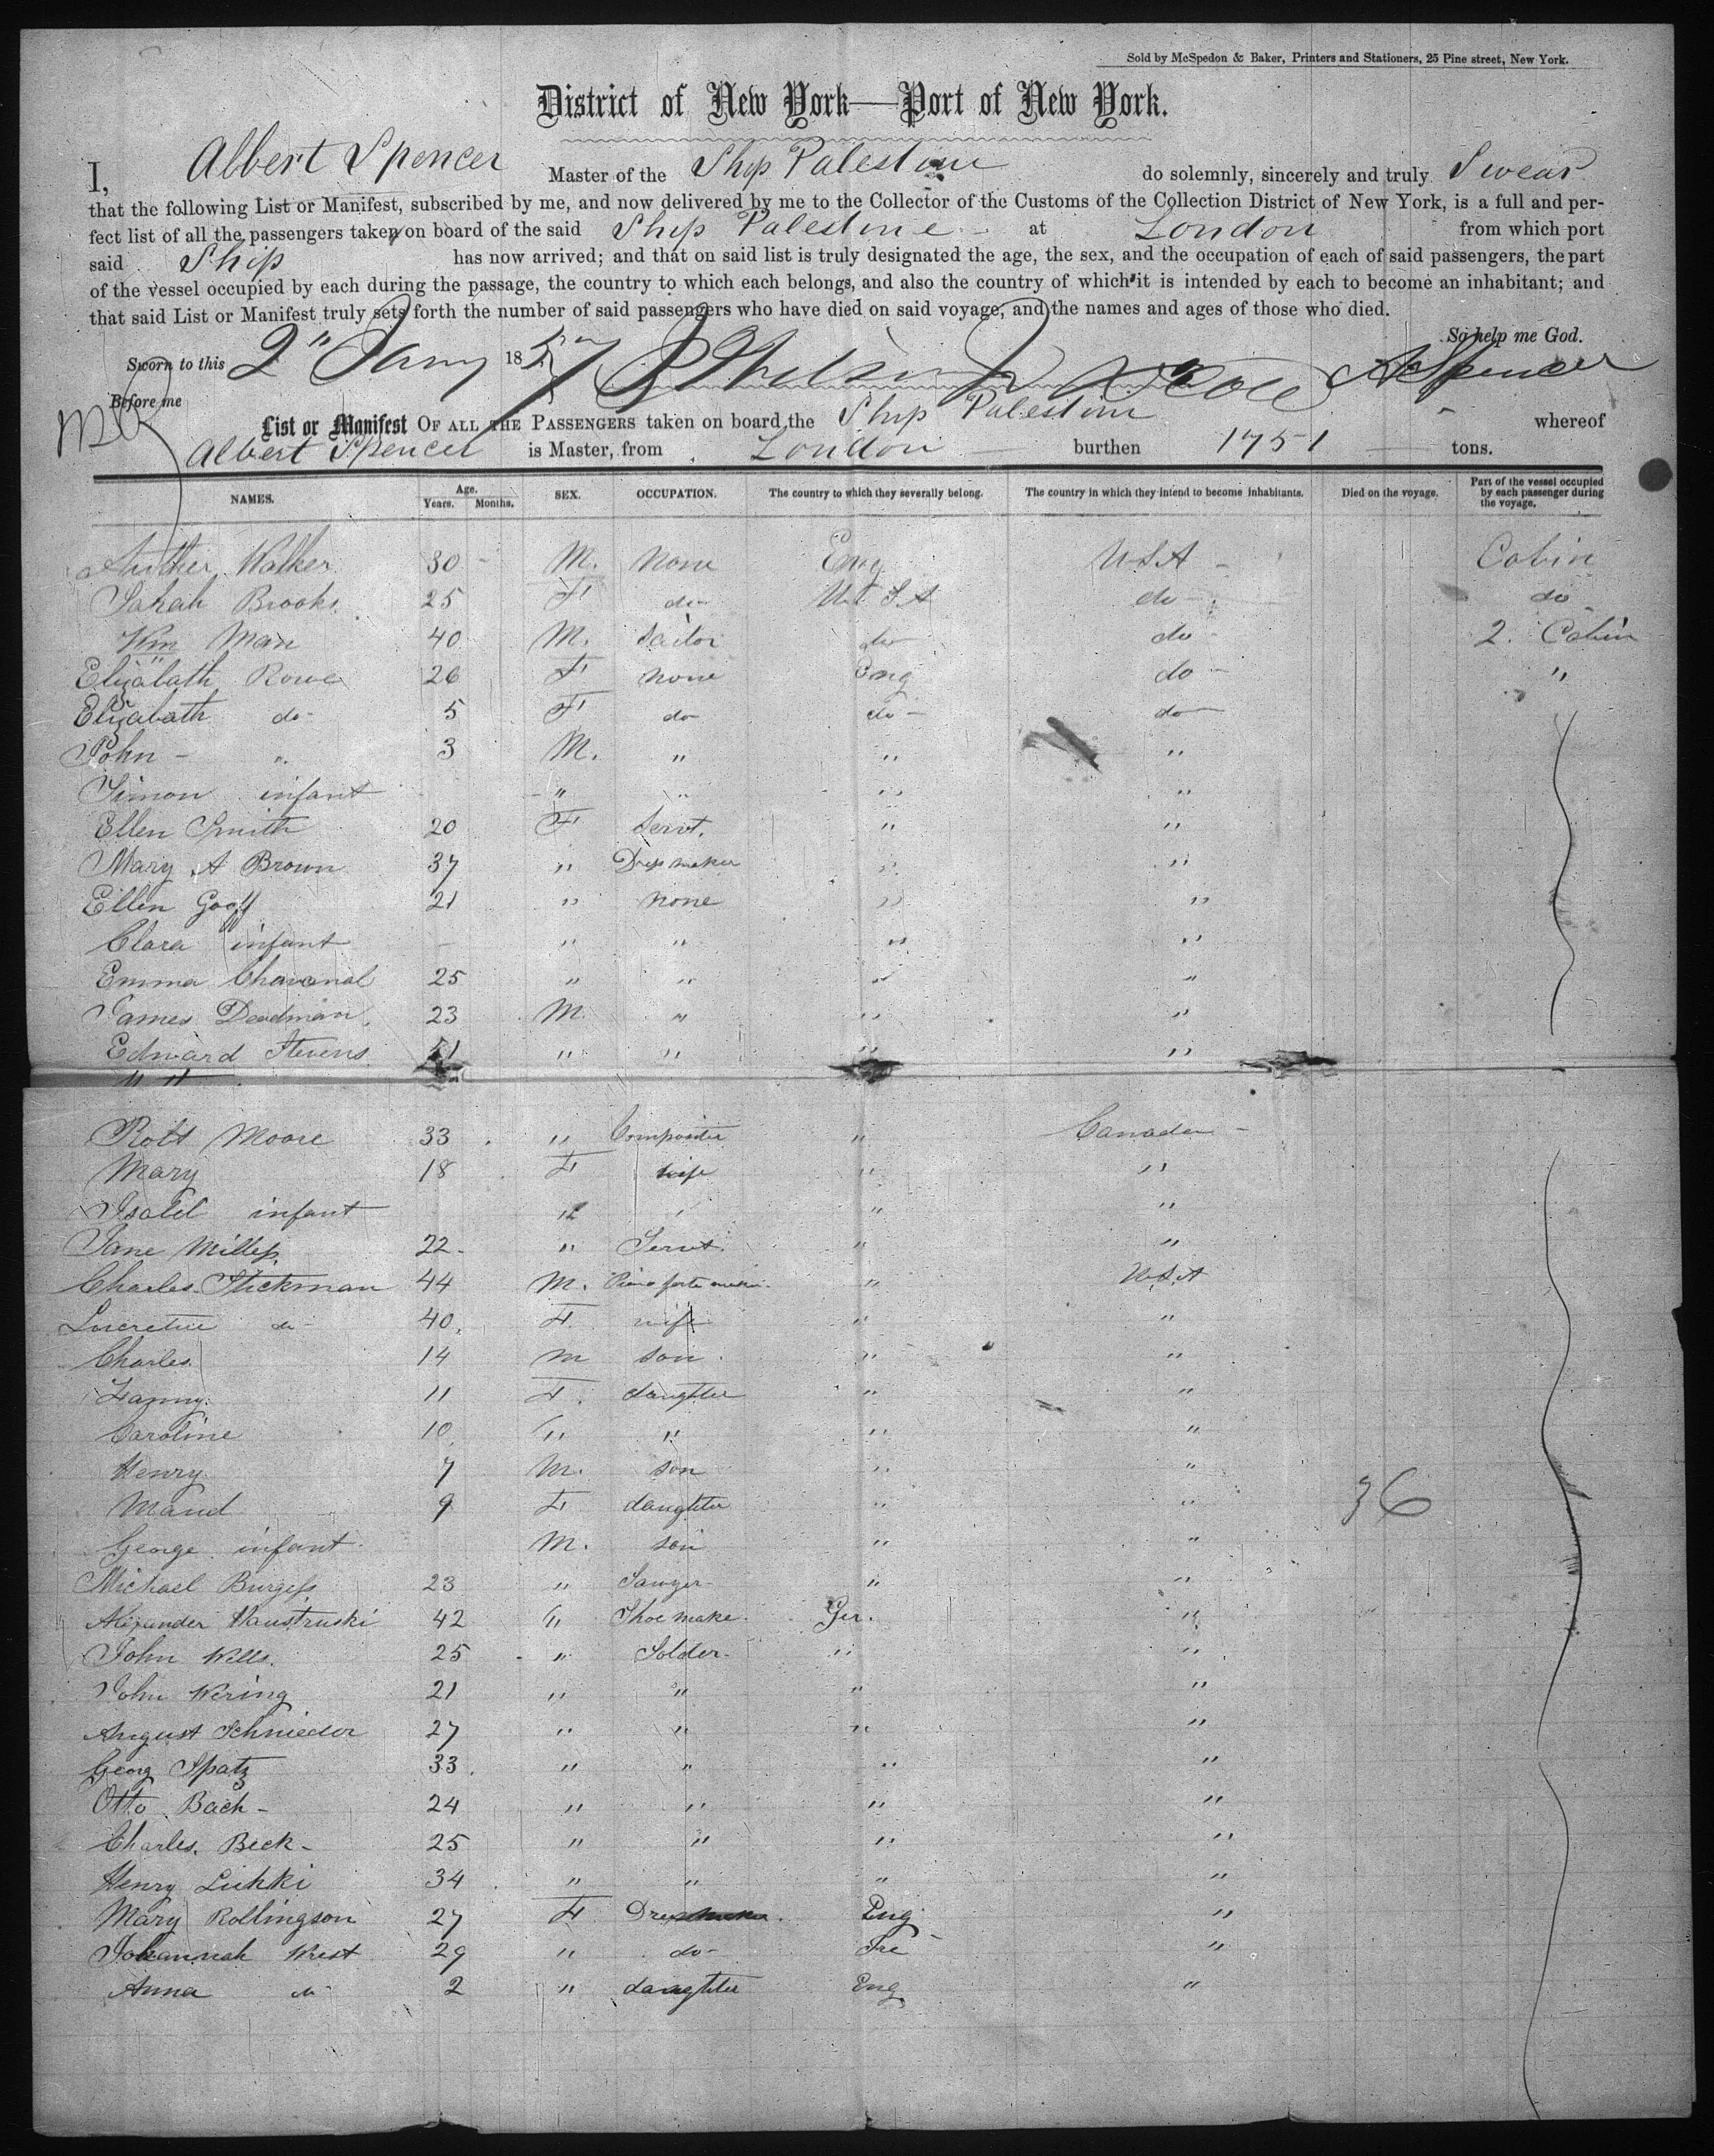 Sold by McSpedon & Baker, Printers and Stationers, 25 Pine street, New York.
District of New York—Port of New York.
I, Albert Spencer Master of the Ship Palestine do solemnly, sincerely and truly Swear
that the following List or Manifest, subscribed by me, and now delivered by me to the Collector of the Customs of the Collection District of New York, is a full and per-
fect list of all the passengers taken on board of the said Ship Palestine at London from which port
said Ship has now arrived; and that on said list is truly designated the age, the sex, and the occupation of each of said passengers, the part
of the vessel occupied by each during the passage, the country to which each belongs, and also the country of which it is intended by each to become an inhabitant; and
that said List or Manifest truly sets forth the number of said passengers who have died on said voyage, and the names and ages of those who died.
So help me God.
Sworn to this 2" Jany 1857 A Spencer
Before me
List or Manifest OF ALL THE PASSENGERS taken on board the Ship Palestine whereof
Albert Spencer is Master, from London burthen 1751 tons.
NAMES. Age. Years. Months. SEX. OCCUPATION. The country to which they severally belong. The country in which they intend to become inhabitants. Died on the voyage. Part of the vessel occupied by each passenger during the voyage.
Walker 30 M. None Eng U S A Cabin
Sarah Brooks 25 F do U. S A do do
Wm Man 40 M. Sailor do do 2. Cabin
Elizabath Rowe 26 F none Eng do "
Elizabath do 5 F do do do
John " 3 M. " " "
Simon infant " " " "
Ellen Smith 20 F Servt. " "
Mary A Brown 37 " Dressmaker " "
Ellen Goff 21 " none " "
Clara infant " " " "
Emma 25 " " " "
James Deadman 23 M " " "
Edward Stevens " " " "
Robt Moore 33 " Compositer " Canada
Mary 18 F wife " "
Isabel infant " " "
Jane Milless 22 " Servt. " "
Charles Stickman 44 M. Piano forte maker " U.S.A
Lucretia do 40 F wife " "
Charles 14 M son " "
Fanny 11 F. daughter " "
Caroline 10 " " " "
Henry 7 M. son " "
Maud 9 F daughter " " 36
George infant M. son " "
Michael Burgess 23 " Sawyer " "
Alexander 42 " Shoe make. Ger. "
John Wells 25 " Solder " "
John Wering 21 " " " "
August Schnieder 27 " " " "
Georg Spatz 33 " " " "
Otto Bach 24 " " " "
Charles Beck 25 " " " "
Henry Luhki 34 " " " "
Mary Rollingson 27 F Dressmaker Eng "
Johannah West 29 " do Ire "
Anna do 2 " daughter Eng "